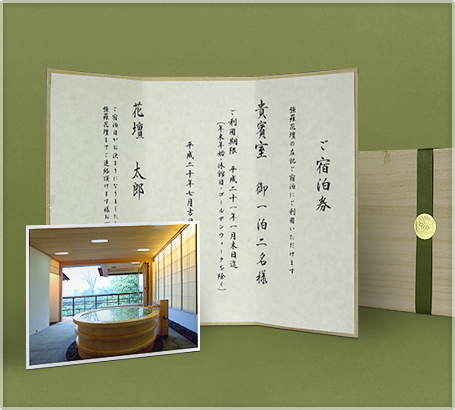 ご宿泊券
強羅花壇の左記ご宿泊にご利用いただけます
貴賓室 御一泊二名様
ご利用期限 平成二十一年一月末日迄
(年末年始・休館日・ゴールデンウィークを除く)
平成二十年七月吉日
花壇 太郎
ご宿泊日がお決まりになりましたら
強羅花壇までご連絡頂けます様お